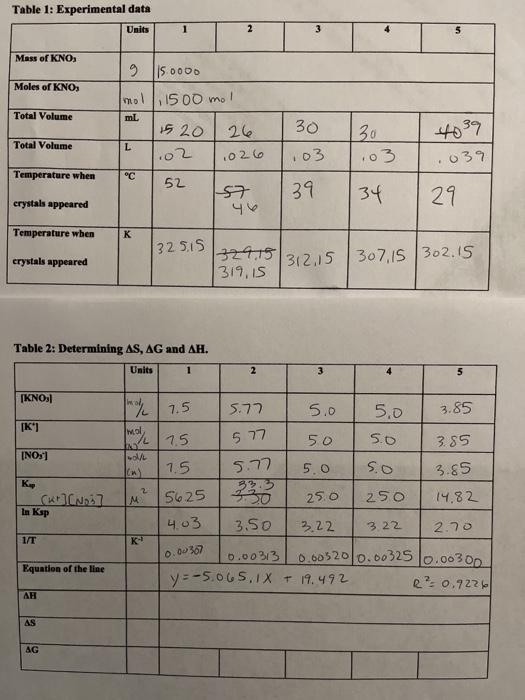 Table 1: Experimental data
Units 1 2 3 4 5
Mass of KNO₃ g 15.0000
Moles of KNO₃ mol .1500 mol
Total Volume mL 20 26 30 30 39
Total Volume L .02 .026 .03 .03 .039
Temperature when crystals appeared °C 52 57 46 39 34 29
Temperature when crystals appeared K 325.15 329.15 319.15 312.15 307.15 302.15
Table 2: Determining ΔS, ΔG and ΔH.
Units 1 2 3 4 5
[KNO₃] mol/L 7.5 5.77 5.0 5.0 3.85
[K⁺] mol/L (M) 7.5 5.77 5.0 5.0 3.85
[NO₃⁻] mol/L (M) 7.5 5.77 5.0 5.0 3.85
Ksp [K⁺][NO₃⁻] M² 56.25 3.30 33.3 25.0 25.0 14.82
ln Ksp 4.03 3.50 3.22 3.22 2.70
1/T K⁻¹ 0.00307 0.00313 0.00320 0.00325
Equation of the line y = -5.065.1x + 19.492 R² = 0.9226
ΔH
ΔS
ΔG